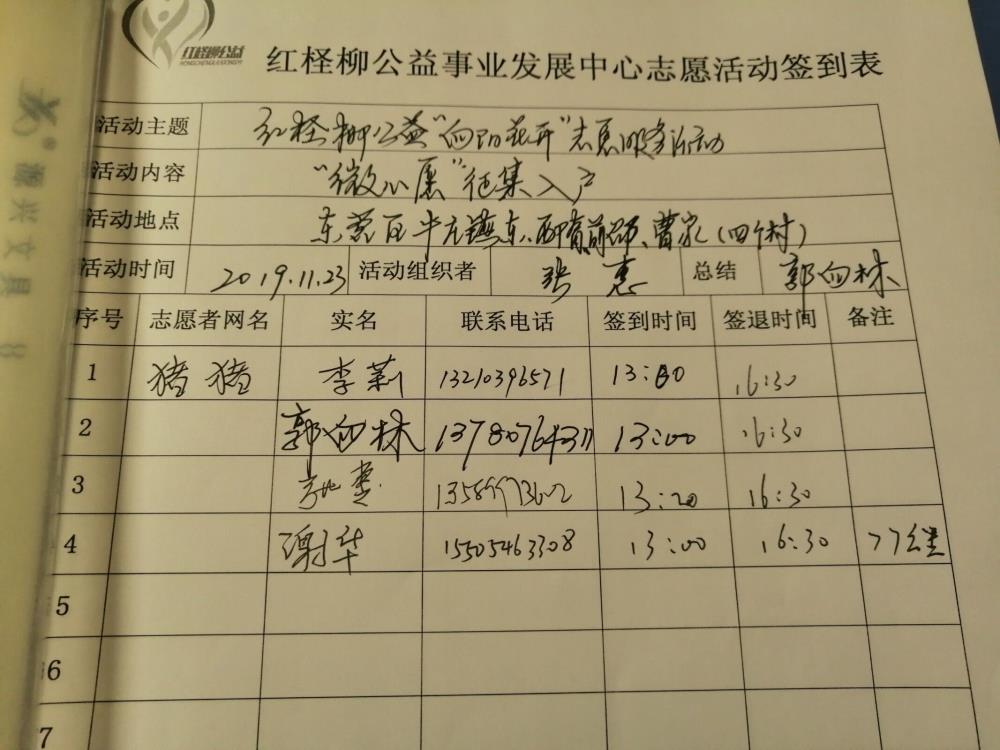 红柽柳公益
HONGCHENGLIUGONGYI
红柽柳公益事业发展中心志愿活动签到表
活动主题 红柽柳公益“向阳花开”志愿服务活动
活动内容 “微心愿”征集入户
活动地点 东营区牛庄镇东、西 曹家(四个村)
活动时间 2019.11.23 活动组织者 张惠 总结 郭向林
序号 志愿者网名 实名 联系电话 签到时间 签退时间 备注
1 猪猪 李莉 13210396571 13:00 16:30
2 郭向林 13780764311 13:00 16:30
3 13:20 16:30
4 谢华 15505463308 13:00 16:30 77公里
5
6
7
源兴文具 8